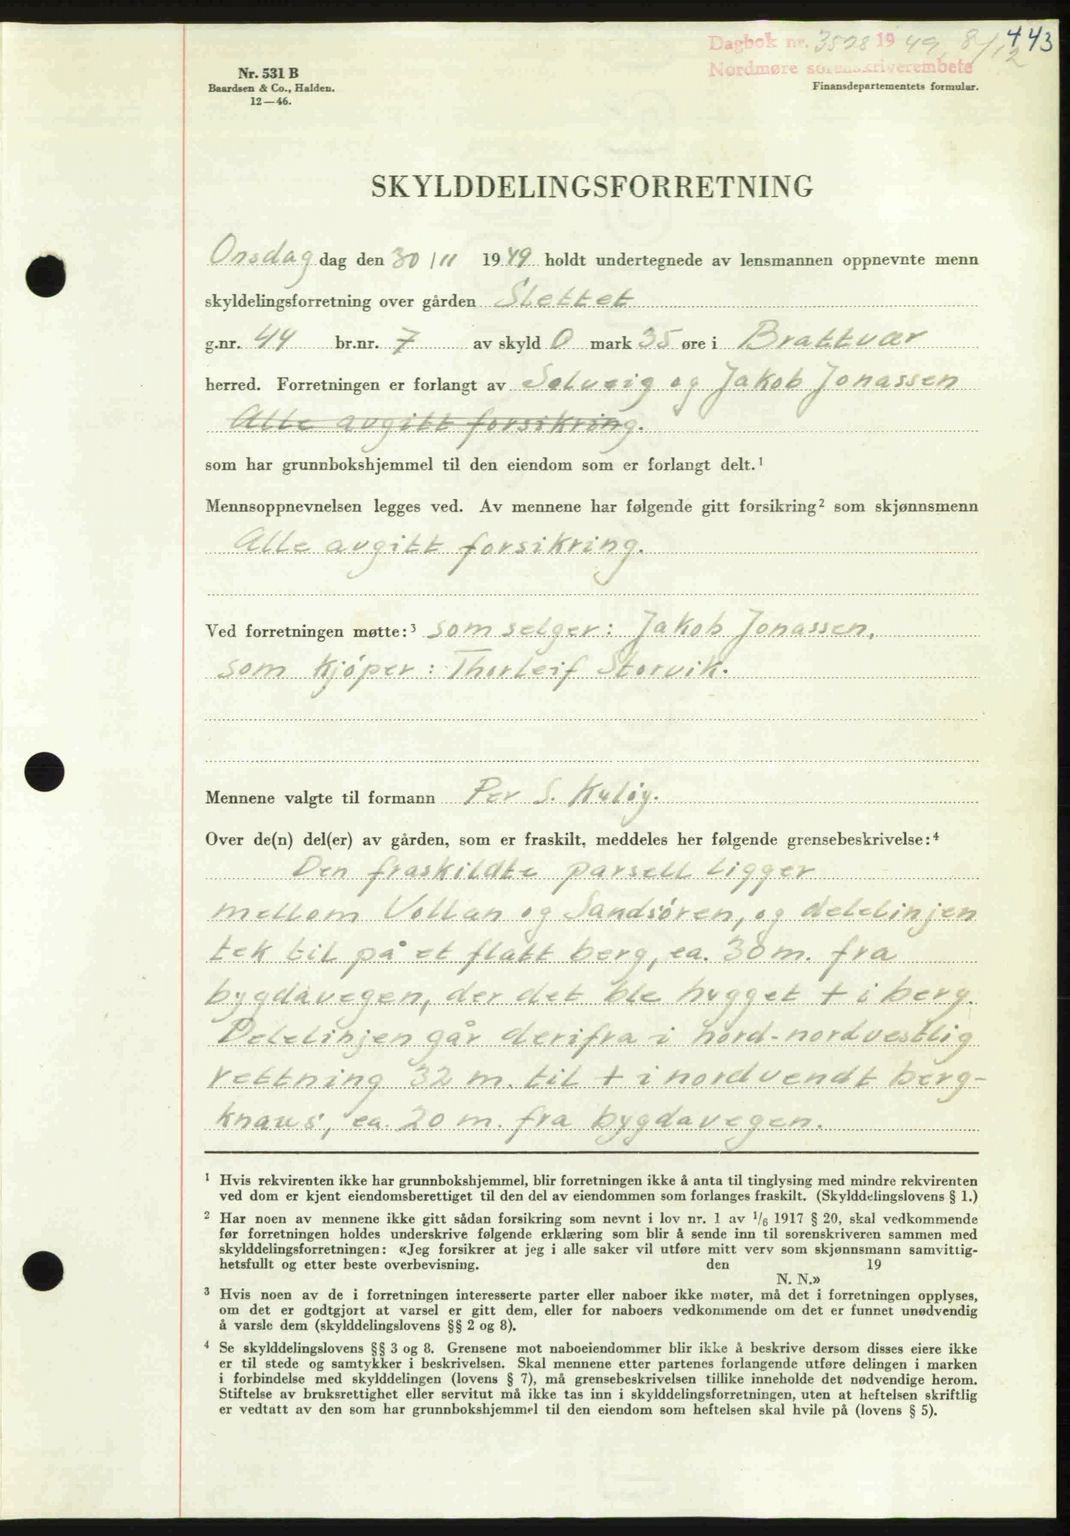 Dagbok nr. 3528 1949, 8/12 443
Nordmøre sorenskriverembete
Nr. 531 B
Baardsen & Co., Halden.
12—46.
Finansdepartementets formular.
SKYLDDELINGSFORRETNING
Onsdag dag den 30/11 1949 holdt undertegnede av lensmannen oppnevnte menn
skyldelingsforretning over gården Slettet
g.nr. 44 br.nr. 7 av skyld 0 mark 35 øre i Brattvær
herred. Forretningen er forlangt av Solveig og Jakob Jonassen
Alle avgitt forsikring.
som har grunnbokshjemmel til den eiendom som er forlangt delt.¹
Mennsoppnevnelsen legges ved. Av mennene har følgende gitt forsikring² som skjønnsmenn
Alle avgitt forsikring.
Ved forretningen møtte:³ som selger: Jakob Jonassen,
som kjöper: Thorleif Storvik.
Mennene valgte til formann Per S. Kulöy.
Over de(n) del(er) av gården, som er fraskilt, meddeles her følgende grensebeskrivelse:⁴
Den fraskildte parsell ligger
mellom Vollan og Sandsören, og delelinjen
tek til på et flatt berg, ca. 30 m. fra
bygdavegen, der det ble hugget + i berg.
Delelinjen går derifra i nord-nordvestlig
rettning 32 m. til + i nordvendt berg-
knaus, ca. 20 m. fra bygdavegen.
¹ Hvis rekvirenten ikke har grunnbokshjemmel, blir forretningen ikke å anta til tinglysing med mindre rekvirenten
ved dom er kjent eiendomsberettiget til den del av eiendommen som forlanges fraskilt. (Skylddelingslovens § 1.)
² Har noen av mennene ikke gitt sådan forsikring som nevnt i lov nr. 1 av 1/6 1917 § 20, skal vedkommende
før forretningen holdes underskrive følgende erklæring som blir å sende inn til sorenskriveren sammen med
skylddelingsforretningen: «Jeg forsikrer at jeg i alle saker vil utføre mitt verv som skjønnsmann samvittig-
hetsfullt og etter beste overbevisning. den 19
N. N.»
³ Hvis noen av de i forretningen interesserte parter eller naboer ikke møter, må det i forretningen opplyses,
om det er godtgjort at varsel er gitt dem, eller for naboers vedkommende om det er funnet unødvendig
å varsle dem (skylddelingslovens §§ 2 og 8).
⁴ Se skylddelingslovens §§ 3 og 8. Grensene mot naboeiendommer blir ikke å beskrive dersom disses eiere ikke
er til stede og samtykker i beskrivelsen. Skal mennene etter partenes forlangende utføre delingen i marken
i forbindelse med skylddelingen (lovens § 7), må grensebeskrivelsen tillike inneholde det nødvendige herom.
Stiftelse av bruksrettighet eller servitut må ikke tas inn i skylddelingsforretningen, uten at heftelsen skriftlig
er vedtatt av den som har grunnbokshjemmel til den eiendom som heftelsen skal hvile på (lovens § 5).